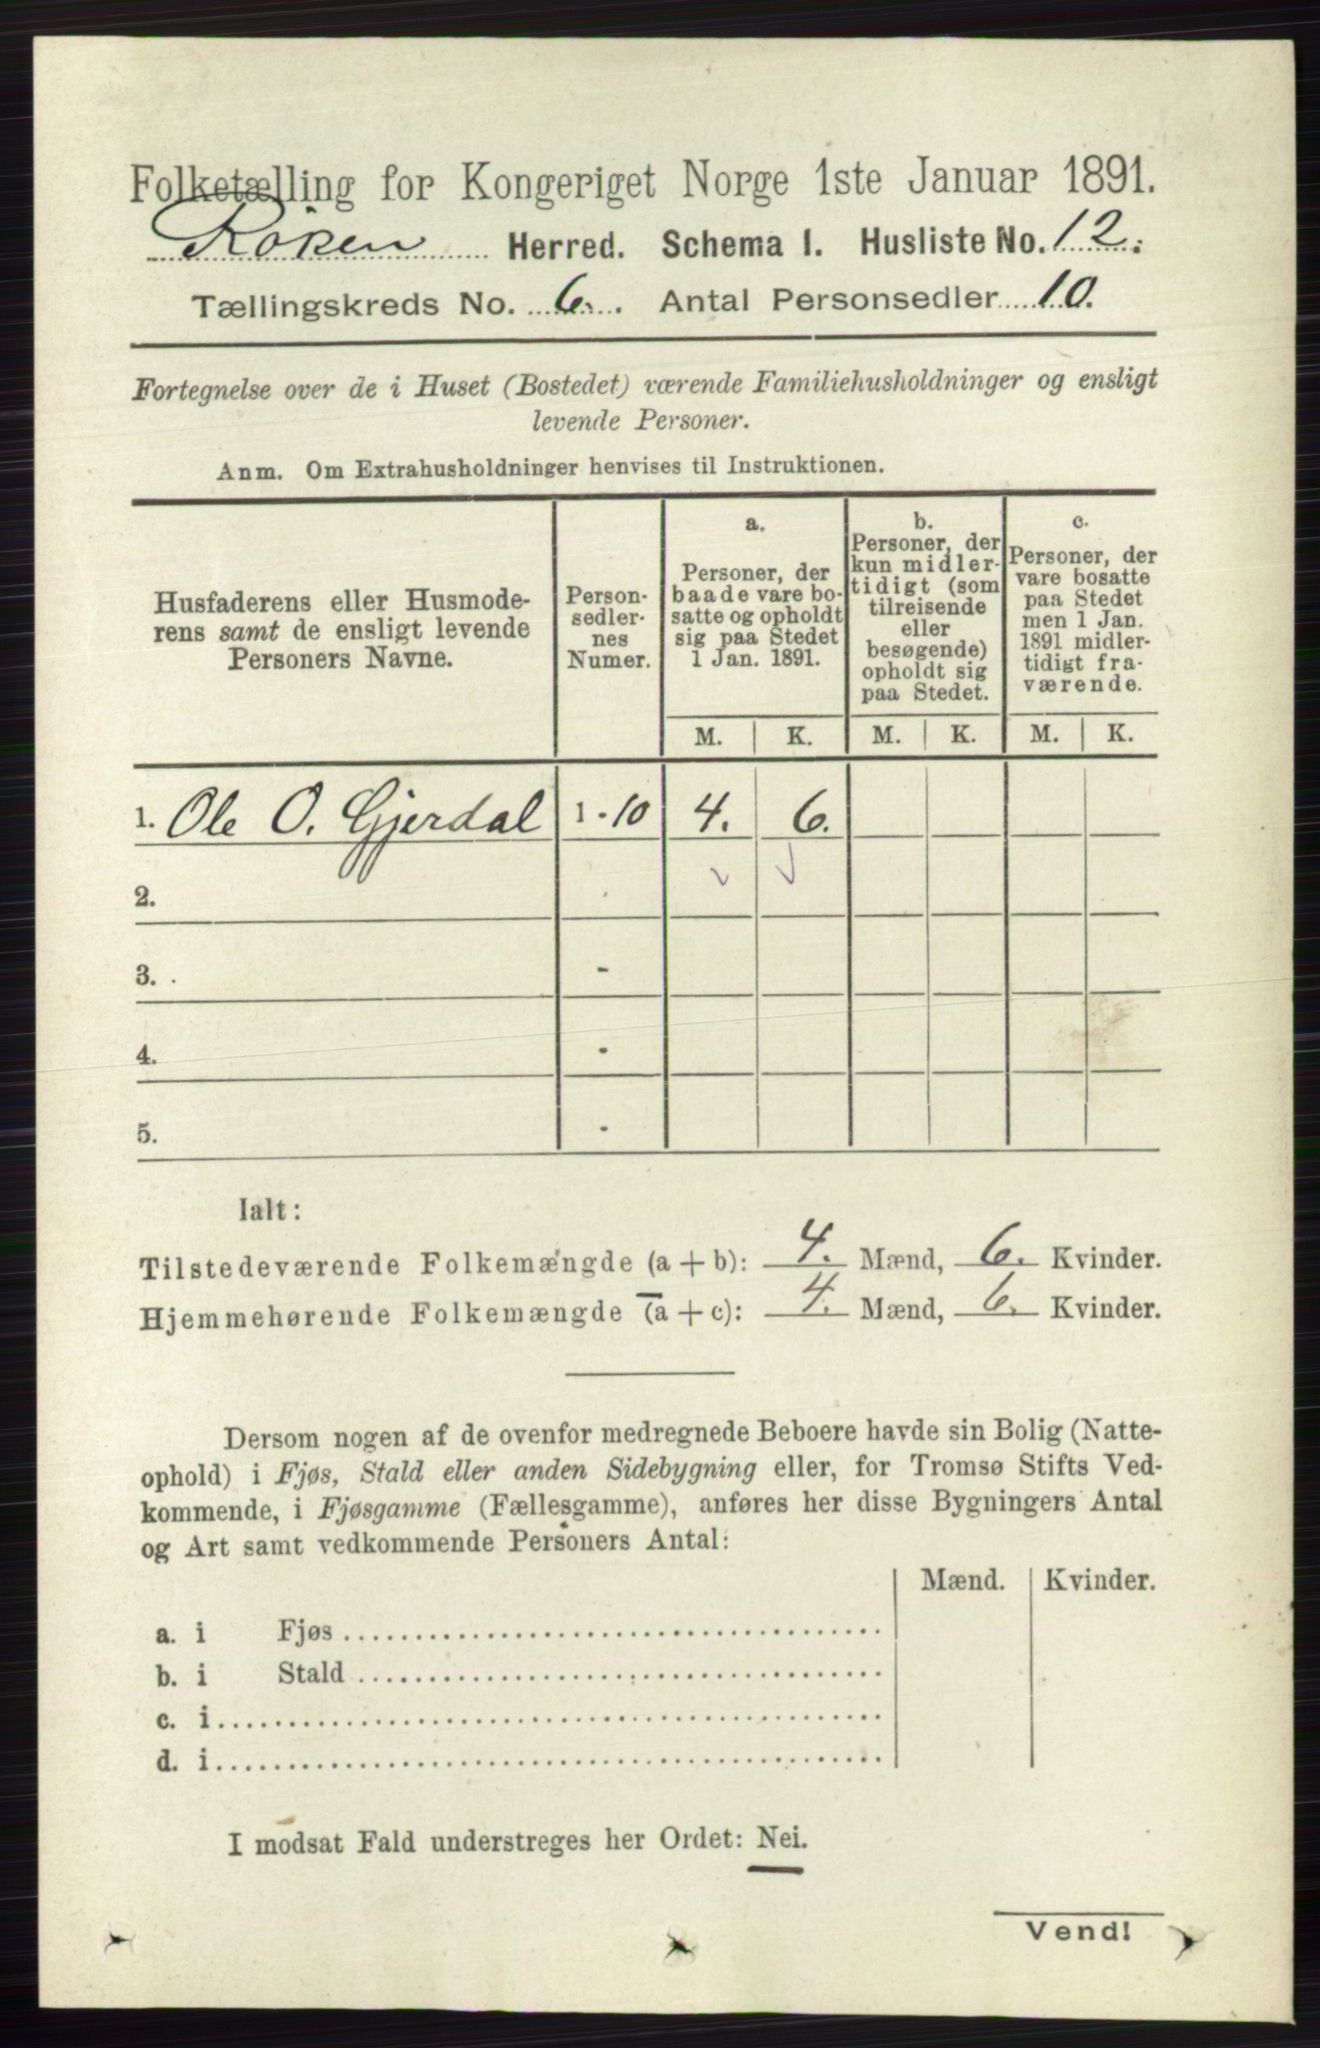 Folketælling for Kongeriget Norge 1ste Januar 1891.
Röken Herred. Schema I. Husliste No. 12.
Tællingskreds No. 6. Antal Personsedler 10.
Fortegnelse over de i Huset (Bostedet) værende Familiehusholdninger og ensligt
levende Personer.
Anm. Om Extrahusholdninger henvises til Instruktionen.
Husfaderens eller Husmode-
rens samt de ensligt levende
Personers Navne.
Person-
sedler-
nes
Numer.
a.
Personer, der
baade vare bo-
satte og opholdt
sig paa Stedet
1 Jan. 1891.
b.
Personer, der
kun midler-
tidigt (som
tilreisende
eller
besøgende)
opholdt sig
paa Stedet.
c.
Personer, der
vare bosatte
paa Stedet
men 1 Jan.
1891 midler-
tidigt fra-
værende.
M. K. M. K. M. K.
1. Ole O. Gjerdal 1-10 4. 6.
2.
3. -
4. -
5. -
Ialt:
Tilstedeværende Folkemængde (a + b): 4. Mænd, 6. Kvinder.
Hjemmehørende Folkemængde (a + c): 4. Mænd, 6. Kvinder.
Dersom nogen af de ovenfor medregnede Beboere havde sin Bolig (Natte-
ophold) i Fjøs, Stald eller anden Sidebygning eller, for Tromsø Stifts Ved-
kommende, i Fjøsgamme (Fællesgamme), anføres her disse Bygningers Antal
og Art samt vedkommende Personers Antal:
Mænd. Kvinder.
a. i Fjøs
b. i Stald
c. i
d. i
I modsat Fald understreges her Ordet: Nei.
Vend!